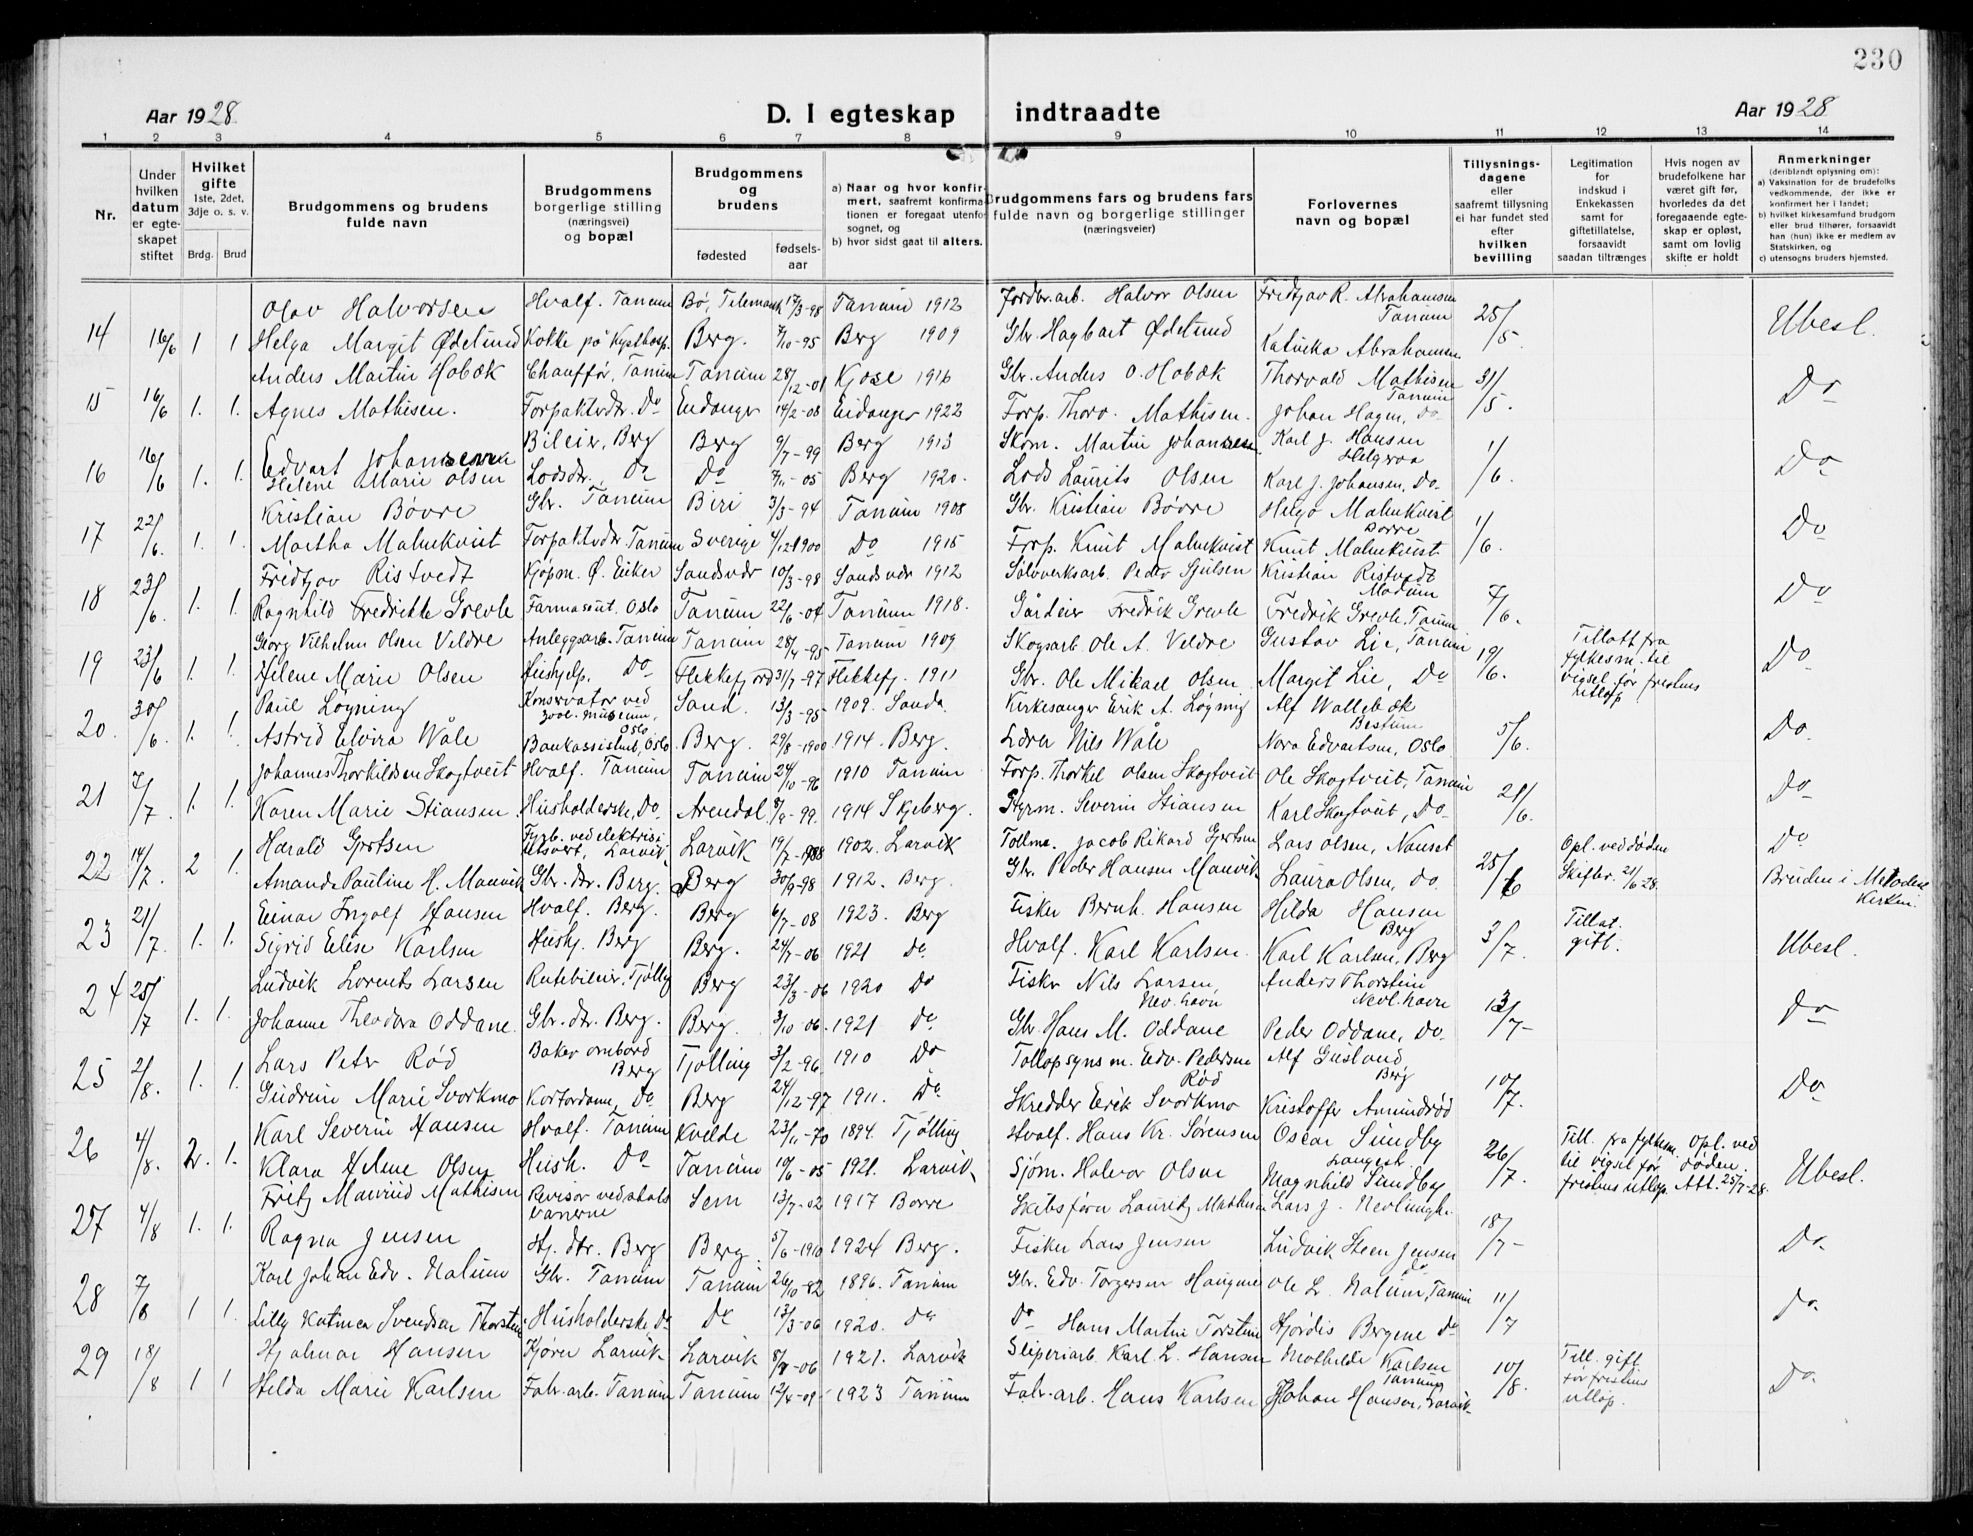 230
Aar 1928.
D. I egteskap indtraadte
Aar 1928
1 2 3 4 5 6 7 8 9 10 11 12 13 14
Nr.
Under hvilken datum er egteskapet stiftet
Hvilket gifte 1ste, 2det, 3dje o. s. v.
Brdg. Brud
Brudgommens og brudens fulde navn
Brudgommens borgerlige stilling (næringsvei) og bopæl
Brudgommens og brudens
fødested
fødsels-aar
a) Naar og hvor konfirmert, saafremt konfirmationen er foregaat utenfor sognet, og
b) hvor sidst gaat til alters.
Brudgommens fars og brudens fars fulde navn og borgerlige stillinger (næringsveier)
Forlovernes navn og bopæl
Tillysningsdagene eller saafremt tillysning ei har fundet sted efter hvilken bevilling
Legitimation for indskud i Enkekassen samt for giftetillatelse, forsaavidt saadan tiltrænges
Hvis nogen av brudefolkene har været gift før, hvorledes da det foregaaende egteskap er opløst, samt om lovlig skifte er holdt
Anmerkninger (deriblandt oplysning om):
a) Vaksination for de brudefolks vedkommende, der ikke er konfirmert her i landet;
b) hvilket kirkesamfund brudgom eller brud tilhører, forsaavidt han (hun) ikke er medlem av Statskirken, og
c) utensogns bruders hjemsted.
Olav Halvorsen Hvalf. Tanum Bø, Telemark 17/3-98 Tanum 1912 Jordbr.arb. Halvor Olsen Fridtjov R. Abrahamsen Tanum
14 16/6 1 1 Helga Margit Ødelund Kokke på Kysthosp. Berg. 7/10-95 Berg 1909 Gbr. Hagbart Ødelund Abrahamsen 25/5 Ubesl.
Anders Martin Hobæk Chauffør, Tanum Tanum 28/12-01 Kjose 1916 Gbr. Anders O. Hobæk Thorvald Mathisen Tanum
15 16/6 1. 1. Agnes Mathisen. Forpakterdtr. Do Eidanger 14/2-08 Eidanger 1922 Forp. Thorv. Mathisen. Johan Hagen, Do 31/5. Do
Edvart Johansen Bileier, Berg Berg 9/7-99 Berg 1913 Skom. Martin Johansen Karl J. Hansen Helgeroa
16 16/6 1. 1. Helene Marie Olsen Lodsdtr. Do Do 7/11-05 Berg 1920. Lods Laurits Olsen Karl J. Johansen, Do. 1/6. Do
Kristian Bøvre Gbr. Tanum Biri 3/3-94 Tanum 1908 Gbr. Kristian Bøvre Helge Malmkvist Borre
17 22/6. 1. 1. Martha Malmkvist Forpakterdtr. Tanum Sverige 4/12 1900 Do 1915 Forp. Knut Malmkvist Knut Malmkvist 1/6. Do
Fridtjov Ristvedt Kjøpm. Ø. Eiker Sandsvær 10/3-98 Sandsvær 1912 Sølvverksarb. Peder Gjulsen Kristian Ristvedt Modum
18 23/6. 1. 1. Ragnhild Fredrikke Grevle Farmasøut. Oslo Tanum 22/6-04 Tanum 1918. Gårdeier Fredrik Grevle Fredrik Grevle, Tanum 7/6. Do
Georg Vilhelm Olsen Veldre Anleggsarb. Tanum Tanum 28/4-95 Tanum 1909 Skogsarb. Ole A. Veldre Gustav Lie, Tanum
19 23/6 1. 1. Helene Marie Olsen Hushjelp. Do Flekkefjord 31/7-97 Flekkefj. 1911 Gbr. Ole Mikael Olsen Margit Lie, Do 19/6. Tillatt fra fylkesm. til vigsel før fristens utløp Do
Paul Løyning Konservator ved zool. museum, Oslo Sand. 13/3-95 1909. Sanda Kirkesanger Erik A. Løyning Alf Wallebæk Bestum
20. 30/6. 1. 1. Astrid Elvira Wåle Bankassistent, Oslo Berg. 29/8-1900 1914. Berg. Lærer Nils Wåle Nora Edvartsen, Oslo 5/6. Do.
Johannes Thorkildsen Skogtveit Hvalf. Tanum Tanum 24/10-96 1910 Tanum Forp. Thorkel Olsen Skogtveit Ole Skogtveit, Tanum
21 7/7. 1. 1. Karen Marie Stiansen. Husholderske, Do. Arendal 8/9-99. 1914 Skjeberg. Styrm. Severin Stiansen Karl Skogtveit, Do. 21/6. Do
Harald Gjertsen Fyrb. ved elektrisitetsverk, Larvik Larvik 19/7-1888 1902. Larvik Tollma. Jacob Rikard Gjertsen Lars Olsen, Nanset
22 14/7. 2 1. Amanda Pauline H. Manvik Gbr. dtr. Berg. Berg 30/9-98 1912. Berg. Gbr. Peder Hansen Manvik Laura Olsen, Do. 25/6 Opl. ved døden Skiftebr. 21/6 28. Do Bruden i Metodistkirken.
Einar Ingolf Hansen Hvalf. Berg. Berg 6/7-08 1923. Berg Fisker Bernh. Hansen Hilda Hansen Berg
23 21/7. 1. 1. Sigrid Elise Karlsen Hushj. Berg Berg. 24/7-06 1921 Do. Hvalf. Karl Karlsen. Karl Karlsen, Berg 3/7. Tillat. gitt. Ubesl.
Ludvik Lorents Larsen Rutebileier, Tjølling Berg 23/3-06 1920 Do Fisker Nils Larsen, Nev. havn Anders Thorstein Nevl. havn
24 25/7 1. 1. Johanne Theodora Oddane. Gbr. dtr. Berg. Berg. 3/10-06. 1921 Do. Gbr. Hans M. Oddane Peder Oddane, Do. 13/7- Do
Lars Peter Rød Baker ombord Berg Tjølling 3/2-96 1910 Do Tollopsynsm. Edv. Pedersen Rød Alf Gusland Berg
25 2/8. 1. 1. Gudrun Marie Svorkmo Kontordame, Do Berg 24/12-97 1911. Do. Skredder Erik Svorkmo Kristoffer Amundrød 10/7. Do.
Karl Severin Hansen Hvalf. Tanum Kvelde 23/11-70 1894. Tjølling Hvalf. Hans Kr. Sørensen Oscar Sundby Langest.
26 4/8. 2. 1. Klara Helene Olsen Hush. Do Tanum 10/6-05 1921. Larvik. Sjøm. Halvor Olsen Magnhild Sundby 26/7. Till. fra fylkesm. til vigsel før fristens utløp. Opl. ved døden. Att. 25/7-28. Ubesl.
Fritz Mauritz Mathisen Revisor ved statsbanerne Sem 13/7-02 1917 Borre Skibsfører Lauritz Mathisen Lars J. Nevlungh.
27 4/8 1. 1. Ragna Jensen Hj. dtr. Berg Berg. 5/6-1910 1924 Berg. Fisker Lars Jensen Ludvik Steen Jensen Do 18/7- Do.
Karl Johan Edv. Nalum Gbr. Tanum Tanum 26/10-82 1896. Tanum Gbr. Edv. Torgersen Haugene Ole L. Nalum, Tanum
28 7/8 1 1. Lilly Katinca Svendsen Thorstein Husholderske Do Do 13/3-06 1920. Do Do Hans Martin Torstein Hjørdis Bergene Do 11/7 Do.
Hjalmar Hansen Kjører Larvik Larvik 8/8-06 1921. Larvik Sliperiarb. Karl L. Hansen Mathilde Karlsen Tanum
29 18/8 1 1 Hilda Marie Karlsen Fabr. arb. Tanum Tanum 12/4-09 1923 Tanum Fabr. arb. Hans Karlsen Johan Hansen, Larvik. 10/8. Till. gitt før fristens utløp. Do.